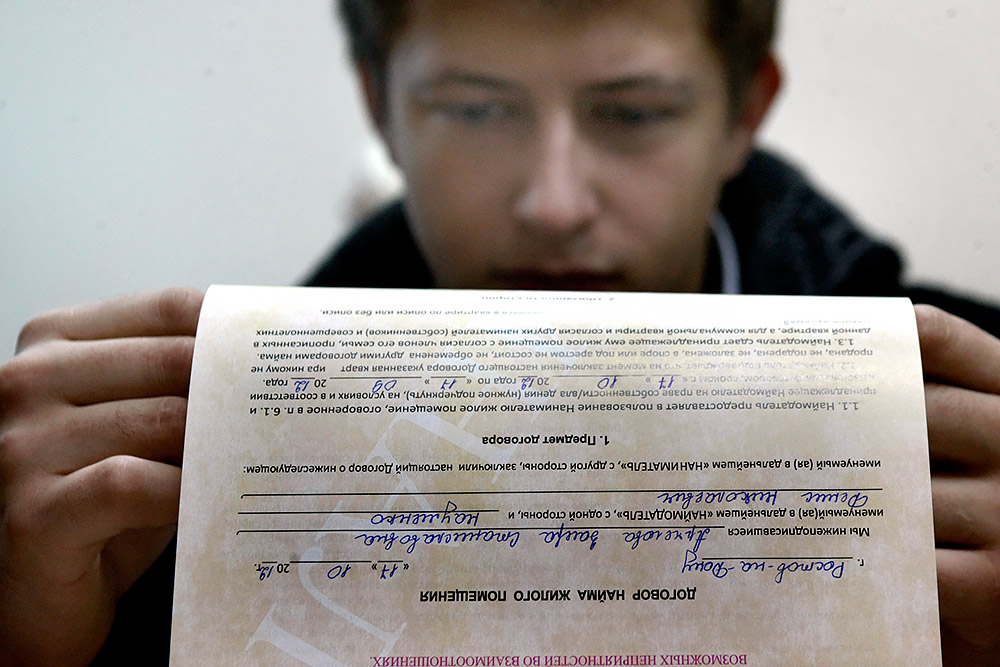 ВОЗМОЖНЫХ НЕПРИЯТНОСТЕЙ ВО ВЗАИМООТНОШЕНИЯХ.
ДОГОВОР НАЙМА ЖИЛОГО ПОМЕЩЕНИЯ
г. Ростов-на-Дону «17» 10 2012г.
Мы нижеподписавшиеся Станиславовна
именуемый (ая) в дальнейшем «НАЙМОДАТЕЛЬ», с одной стороны, и Науменко
Денис Николаевич
именуемый (ая) в дальнейшем «НАНИМАТЕЛЬ», с другой стороны, заключили настоящий Договор о нижеследующем:
1. Предмет договора
1.1. Наймодатель предоставляет в пользование Нанимателю жилое помещение, оговоренное в п. 6.1. и
принадлежащее Наймодателю на праве собственности/вла дения (нужное подчеркнуть), на условиях и в соответствии
«17» 10 2012 года по «17» 09 2012 года.
1.2. Наймодатель подтверждает, что на момент заключения настоящего Договора указанная кварт ира никому не
продана, не подарена, не заложена, в споре или под арестом не состоит, не обременена другими договорами найма.
1.3. Наймодатель сдает принадлежащее ему жилое помещение с согласия членов его семьи, прописанных в
данной квартире, а для коммунальной квартиры и согласия других нанимателей (собственников) и совершеннолетних
в квартире по описи или без описи.
2. Обязанности сторон